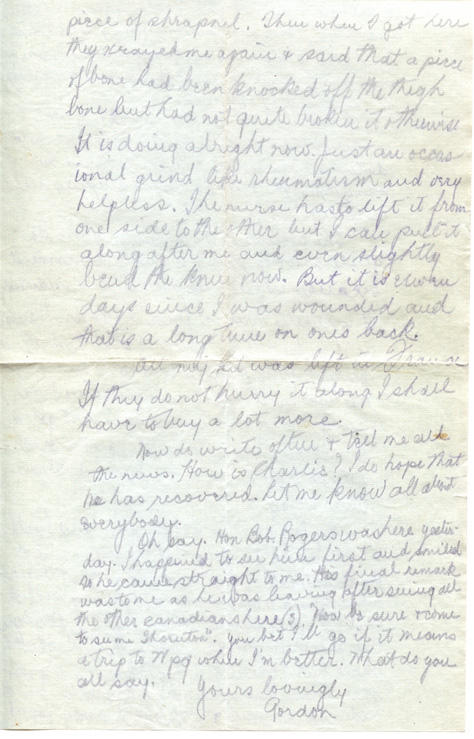 piece of shrapnel. Then when I got here
they xrayed me again & said that a piece
of bone had been knocked off the thigh
bone but had not quite broken it otherwise
It is doing alright now. Just an occas
ional grind like rheumatism and very
helpless. The nurse has to lift it from
one side to the other but I can pull it
along after me and even slightly
bend the knee now. But it is eleven
days since I was wounded and
that is a long time on ones back.
All my kit was left in France
If they do not hurry it along I shall
have to buy a lot more.
Now do write often & tell me all
the news. How is Charlie? I do hope that
he has recovered. Let me know all about
everybody.
Oh say. Hon Bob. Rogers was here yester-
day. I happened to see him first and smiled
so he came straight to me. His final remark
was to me as he was leaving after seeing all
the other canadians here (3). "Now be sure & come
to see me Thornton". You bet I'll go if it means
a trip to Wpg when I'm better. What do you
all say.
Yours lovingly
Gordon